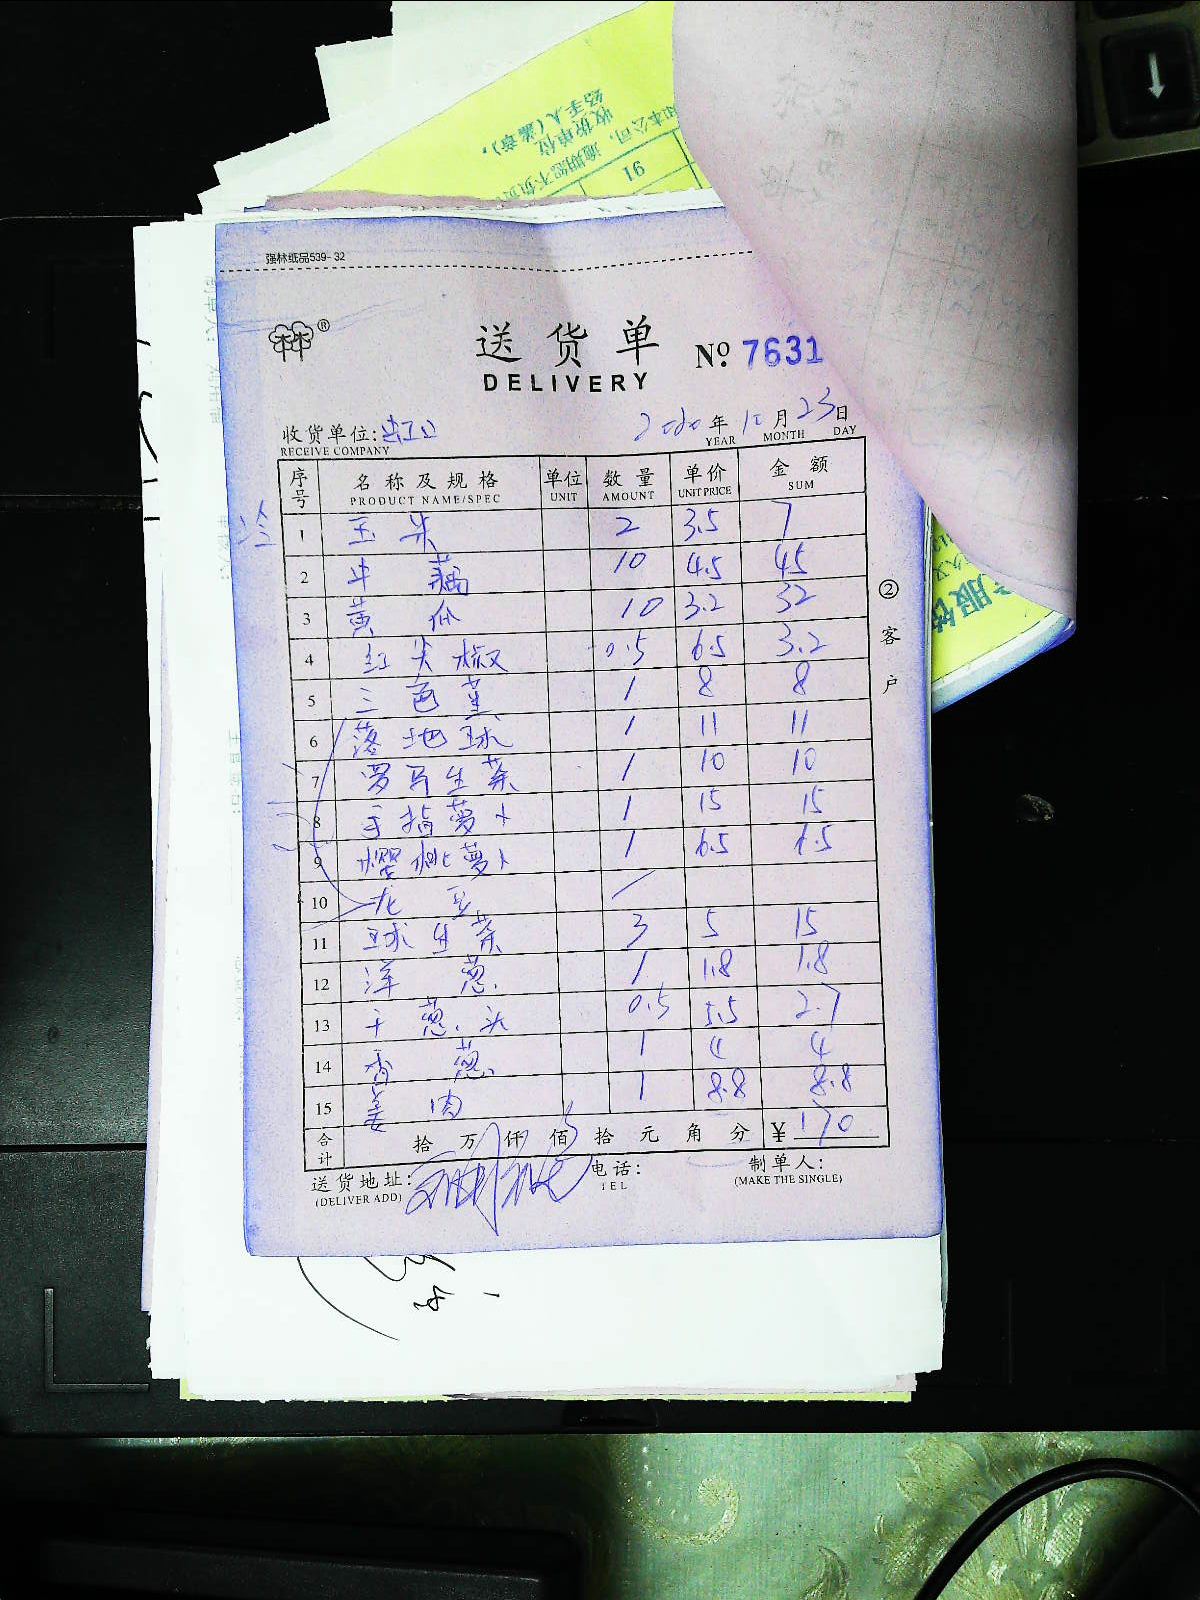 收货单位
经手人(盖章):
16
强林纸品539-32
送货单
DELIVERY
№ 7631
收货单位:
RECEIVE COMPANY
2020年 10月 23日
YEAR MONTH DAY
序号 名称及规格 单位 数量 单价 金额
PRODUCT NAME/SPEC UNIT AMOUNT UNIT PRICE SUM
1 玉米 2 3.5 7
2 牛藕 10 4.5 45
3 黄瓜 10 3.2 32
4 红尖椒 0.5 6.5 3.2
5 三色堇 1 8 8
6 落地球 1 11 11
7 罗马生菜 1 10 10
8 手指萝卜 1 15 15
9 樱桃萝卜 1 6.5 6.5
10 龙豆
11 球生菜 3 5 15
12 洋葱 1 1.8 1.8
13 干葱头 0.5 5.5 2.7
14 香葱 1 4 4
15 姜肉 1 8.8 8.8
合计 拾 万 仟 佰 拾 元 角 分 ¥ 170
送货地址: 电话: 制单人:
(DELIVER ADD) TEL (MAKE THE SINGLE)
② 客户